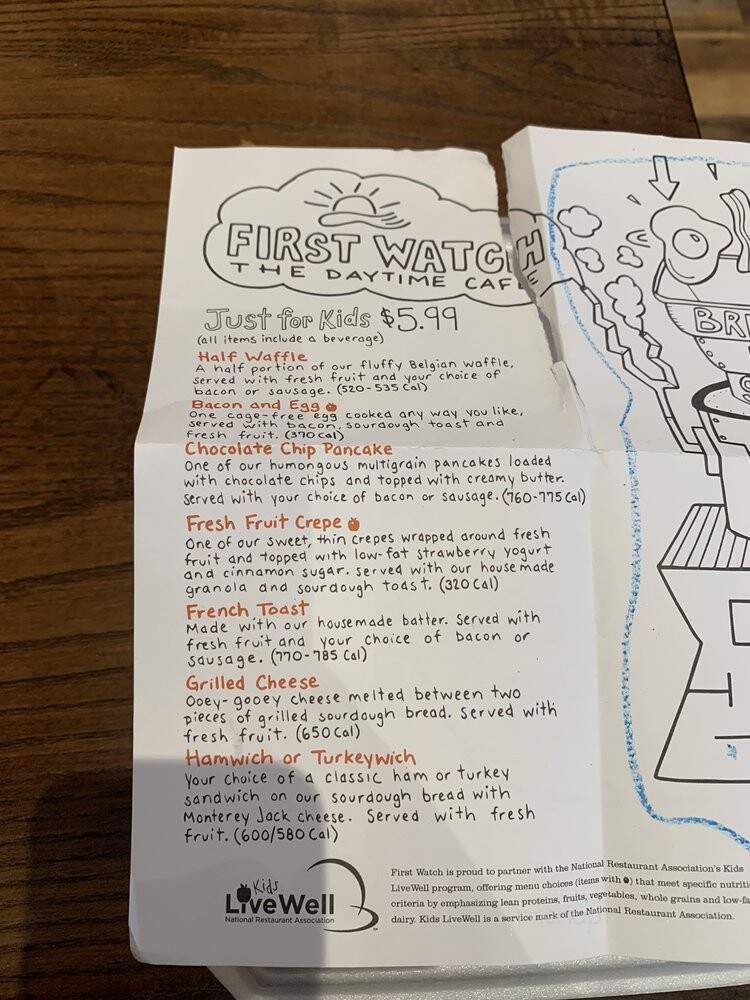 FIRST WATCH
THE DAYTIME CAF
Just for Kids $5.99
(all items include a beverage)
Half Waffle
A half portion of our fluffy Belgian waffle,
served with fresh fruit and your choice of
bacon or sausage. (520-535 Cal)
Bacon and Egg
One cage-free egg cooked any way you like,
served with bacon, sourdough toast and
fresh fruit. (370 cal)
Chocolate Chip Pancake
One of our humongous multigrain pancakes loaded
with chocolate chips and topped with creamy butter.
Served with your choice of bacon or sausage. (760-775 Cal)
Fresh Fruit Crepe
One of our sweet, thin crepes wrapped around fresh
fruit and topped with low-fat strawberry yogurt
and cinnamon sugar. served with our housemade
granola and sourdough toast. (320 Cal)
French Toast
Made with our housemade batter. Served with
fresh fruit and your choice of bacon or
sausage. (770-785 Cal)
Grilled Cheese
Ooey-gooey cheese melted between two
pieces of grilled sourdough bread. Served with
fresh fruit. (650 Cal)
Hamwich or Turkeywich
Your choice of a classic ham or turkey
sandwich on our sourdough bread with
Monterey Jack cheese. Served with fresh
fruit. (600/580 Cal)
Kids
LiveWell
National Restaurant Association
First Watch is proud to partner with the National Restaurant Association's Kids
LiveWell program, offering menu choices (items with ) that meet specific nutriti
criteria by emphasizing lean proteins, fruits, vegetables, whole grains and low-fa
dairy. Kids LiveWell is a service mark of the National Restaurant Association.
BR